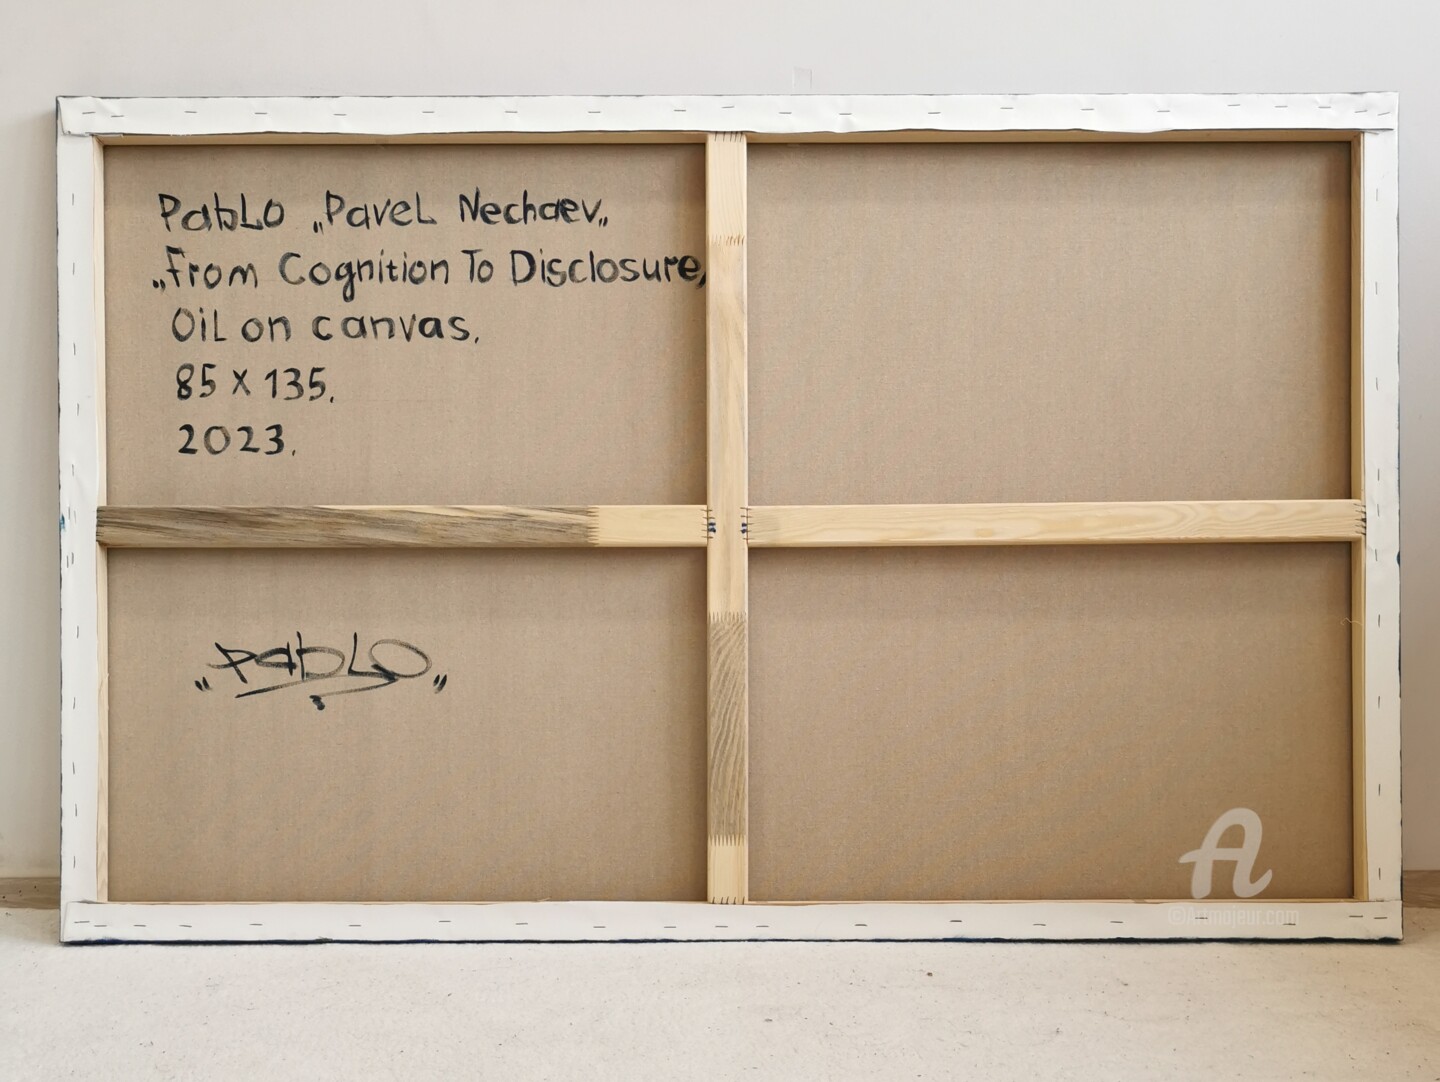 PabLo „PaveL Nechaev„
„From Cognition To Disclosure,
OiL on canvas.
85 x 135.
2023.
„PabLo"
A
©Artmajeur.com